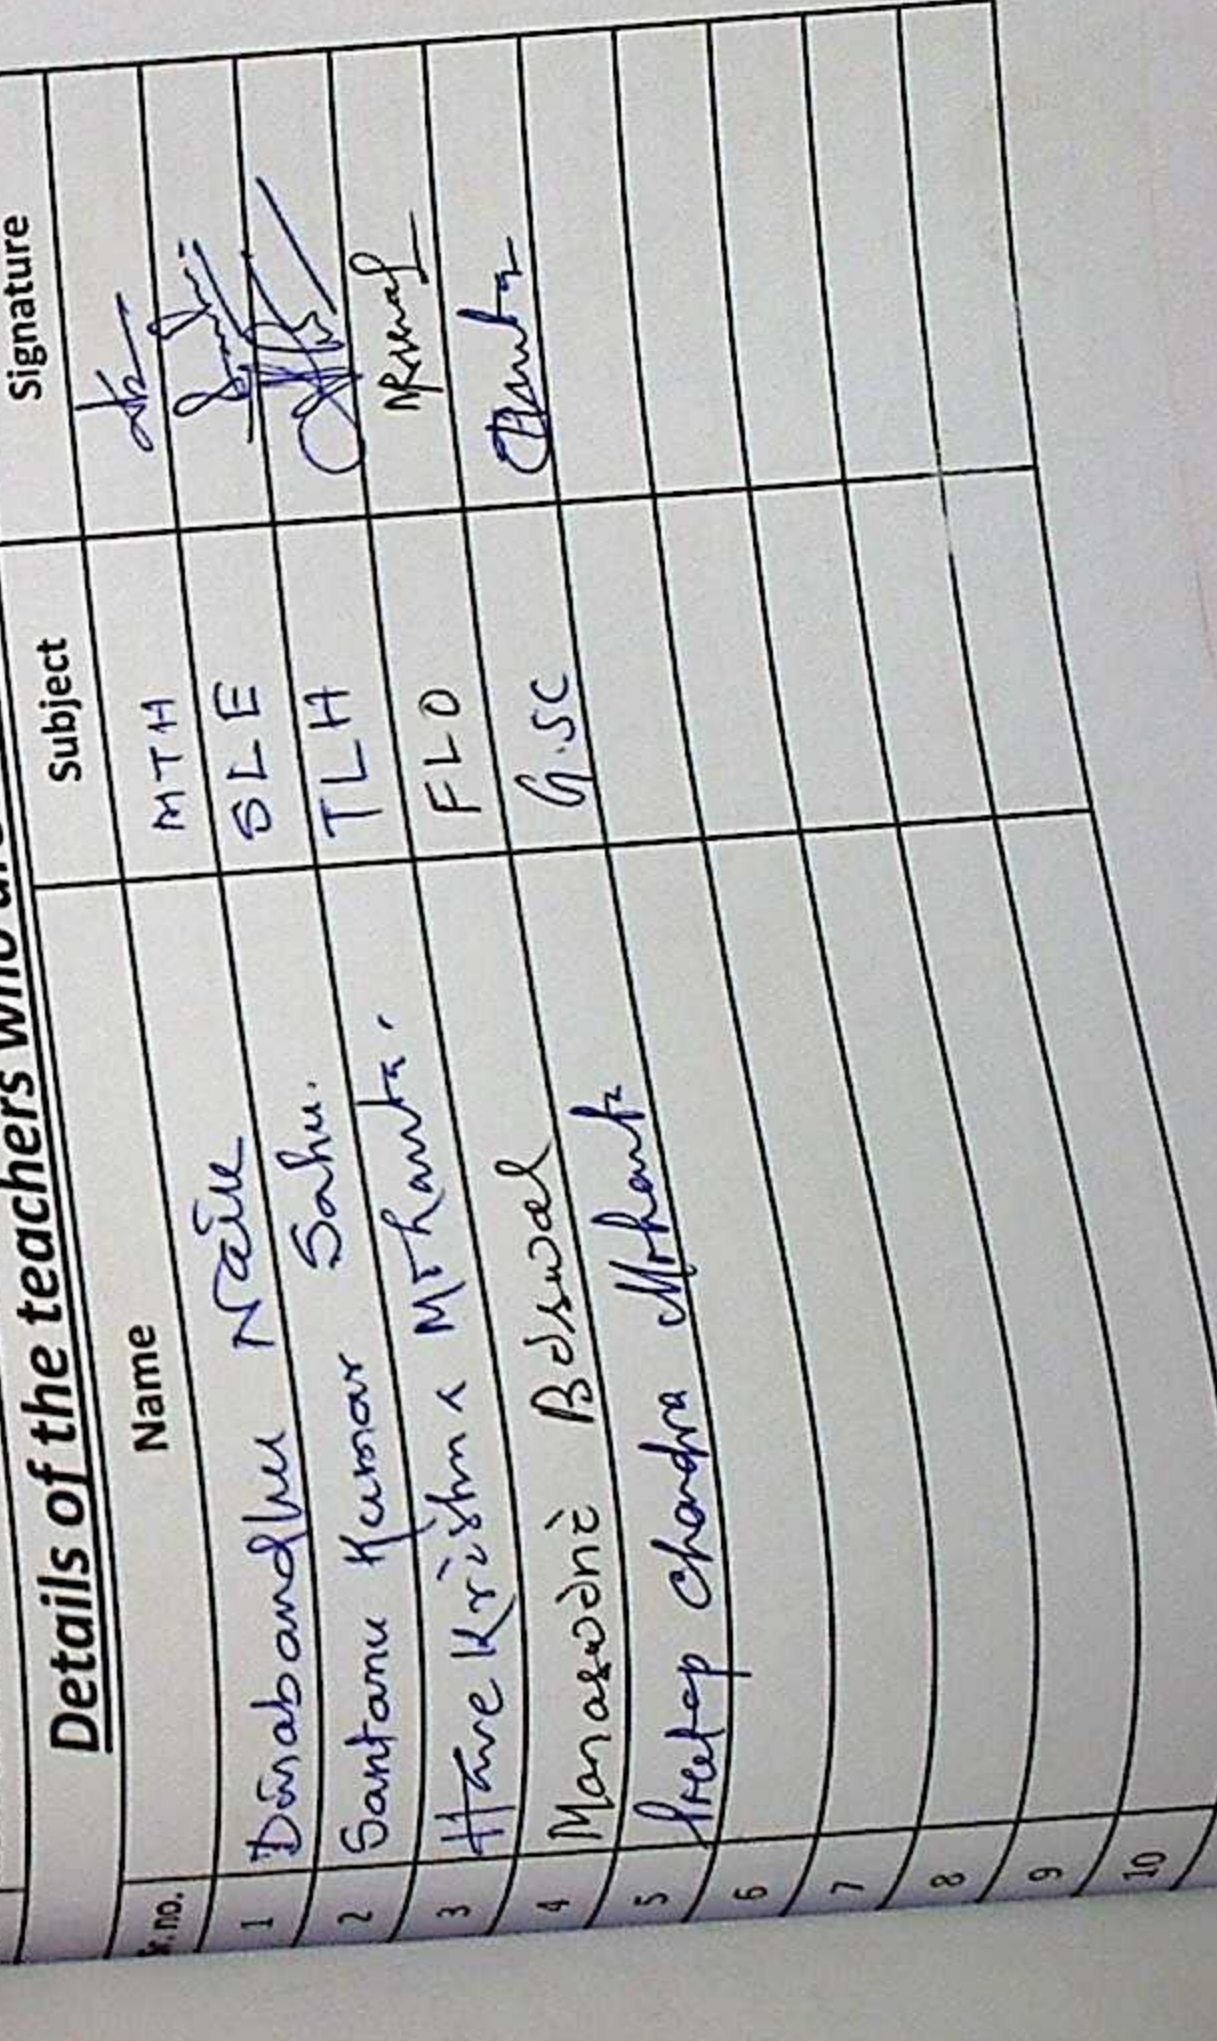 Details of the teachers who
Sr. no. Name Subject Signature
1 Dinabandhu Naik MTH
2 Santanu Kumar Sahu. SLE
3 Hare Krishna Mohanta. TLH
4 Manaswini Biswal FLO
5 Pratap Chandra Mohanta G.SC
6
7
8
9
10